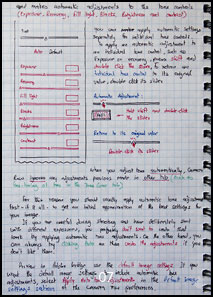 and makes automatic adjustments to the tone controls
(Exposure, Recovery, Fill light, Blacks, Brightness and contrast)
You can apply automatic settings
separately for individual tone controls.
to apply an automatic adjustment to
an individual tone control such as
Exposure or recovery, press shift and
double click the slider, To return an
individual tone control to its original
value, double click its slider
Auto Default
Exposure
Recovery
Fill light
Blacks
Brightness
Contrast
Automatic Adjustment:
Hold shift and double click
the slider
Return to its original value
double click its slider
When you adjust tone automatically, Camera
Raw ignores any adjustments previously made in other tabs
For this reason you should usually apply automatic tone adjustments
first - if at all - to get an initial approximation of the best settings for
your image.
If you are careful during shooting and have deliberately shot
with different exposures, you probably don't want to undo that
work by applying automatic tone adjustments. On the other hand, you
can always try clicking Auto and then undo the adjustments if you
don't like them.
07
Preview in Adobe bridge use the default image settings. If you
want the default image settings to include automatic tone
adjustments, select Apply Auto Tone Adjustments in the default image
settings section of the Camera Raw preferences.